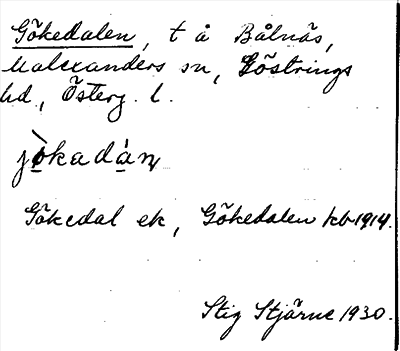 Gökedalen, t å Bålnäs,
Malexanders sn, Göstrings
hd., Österg. l.
jòkadán
Gökedal ek, Gökedalen kb 1914.
Stig Stjärne 1930.